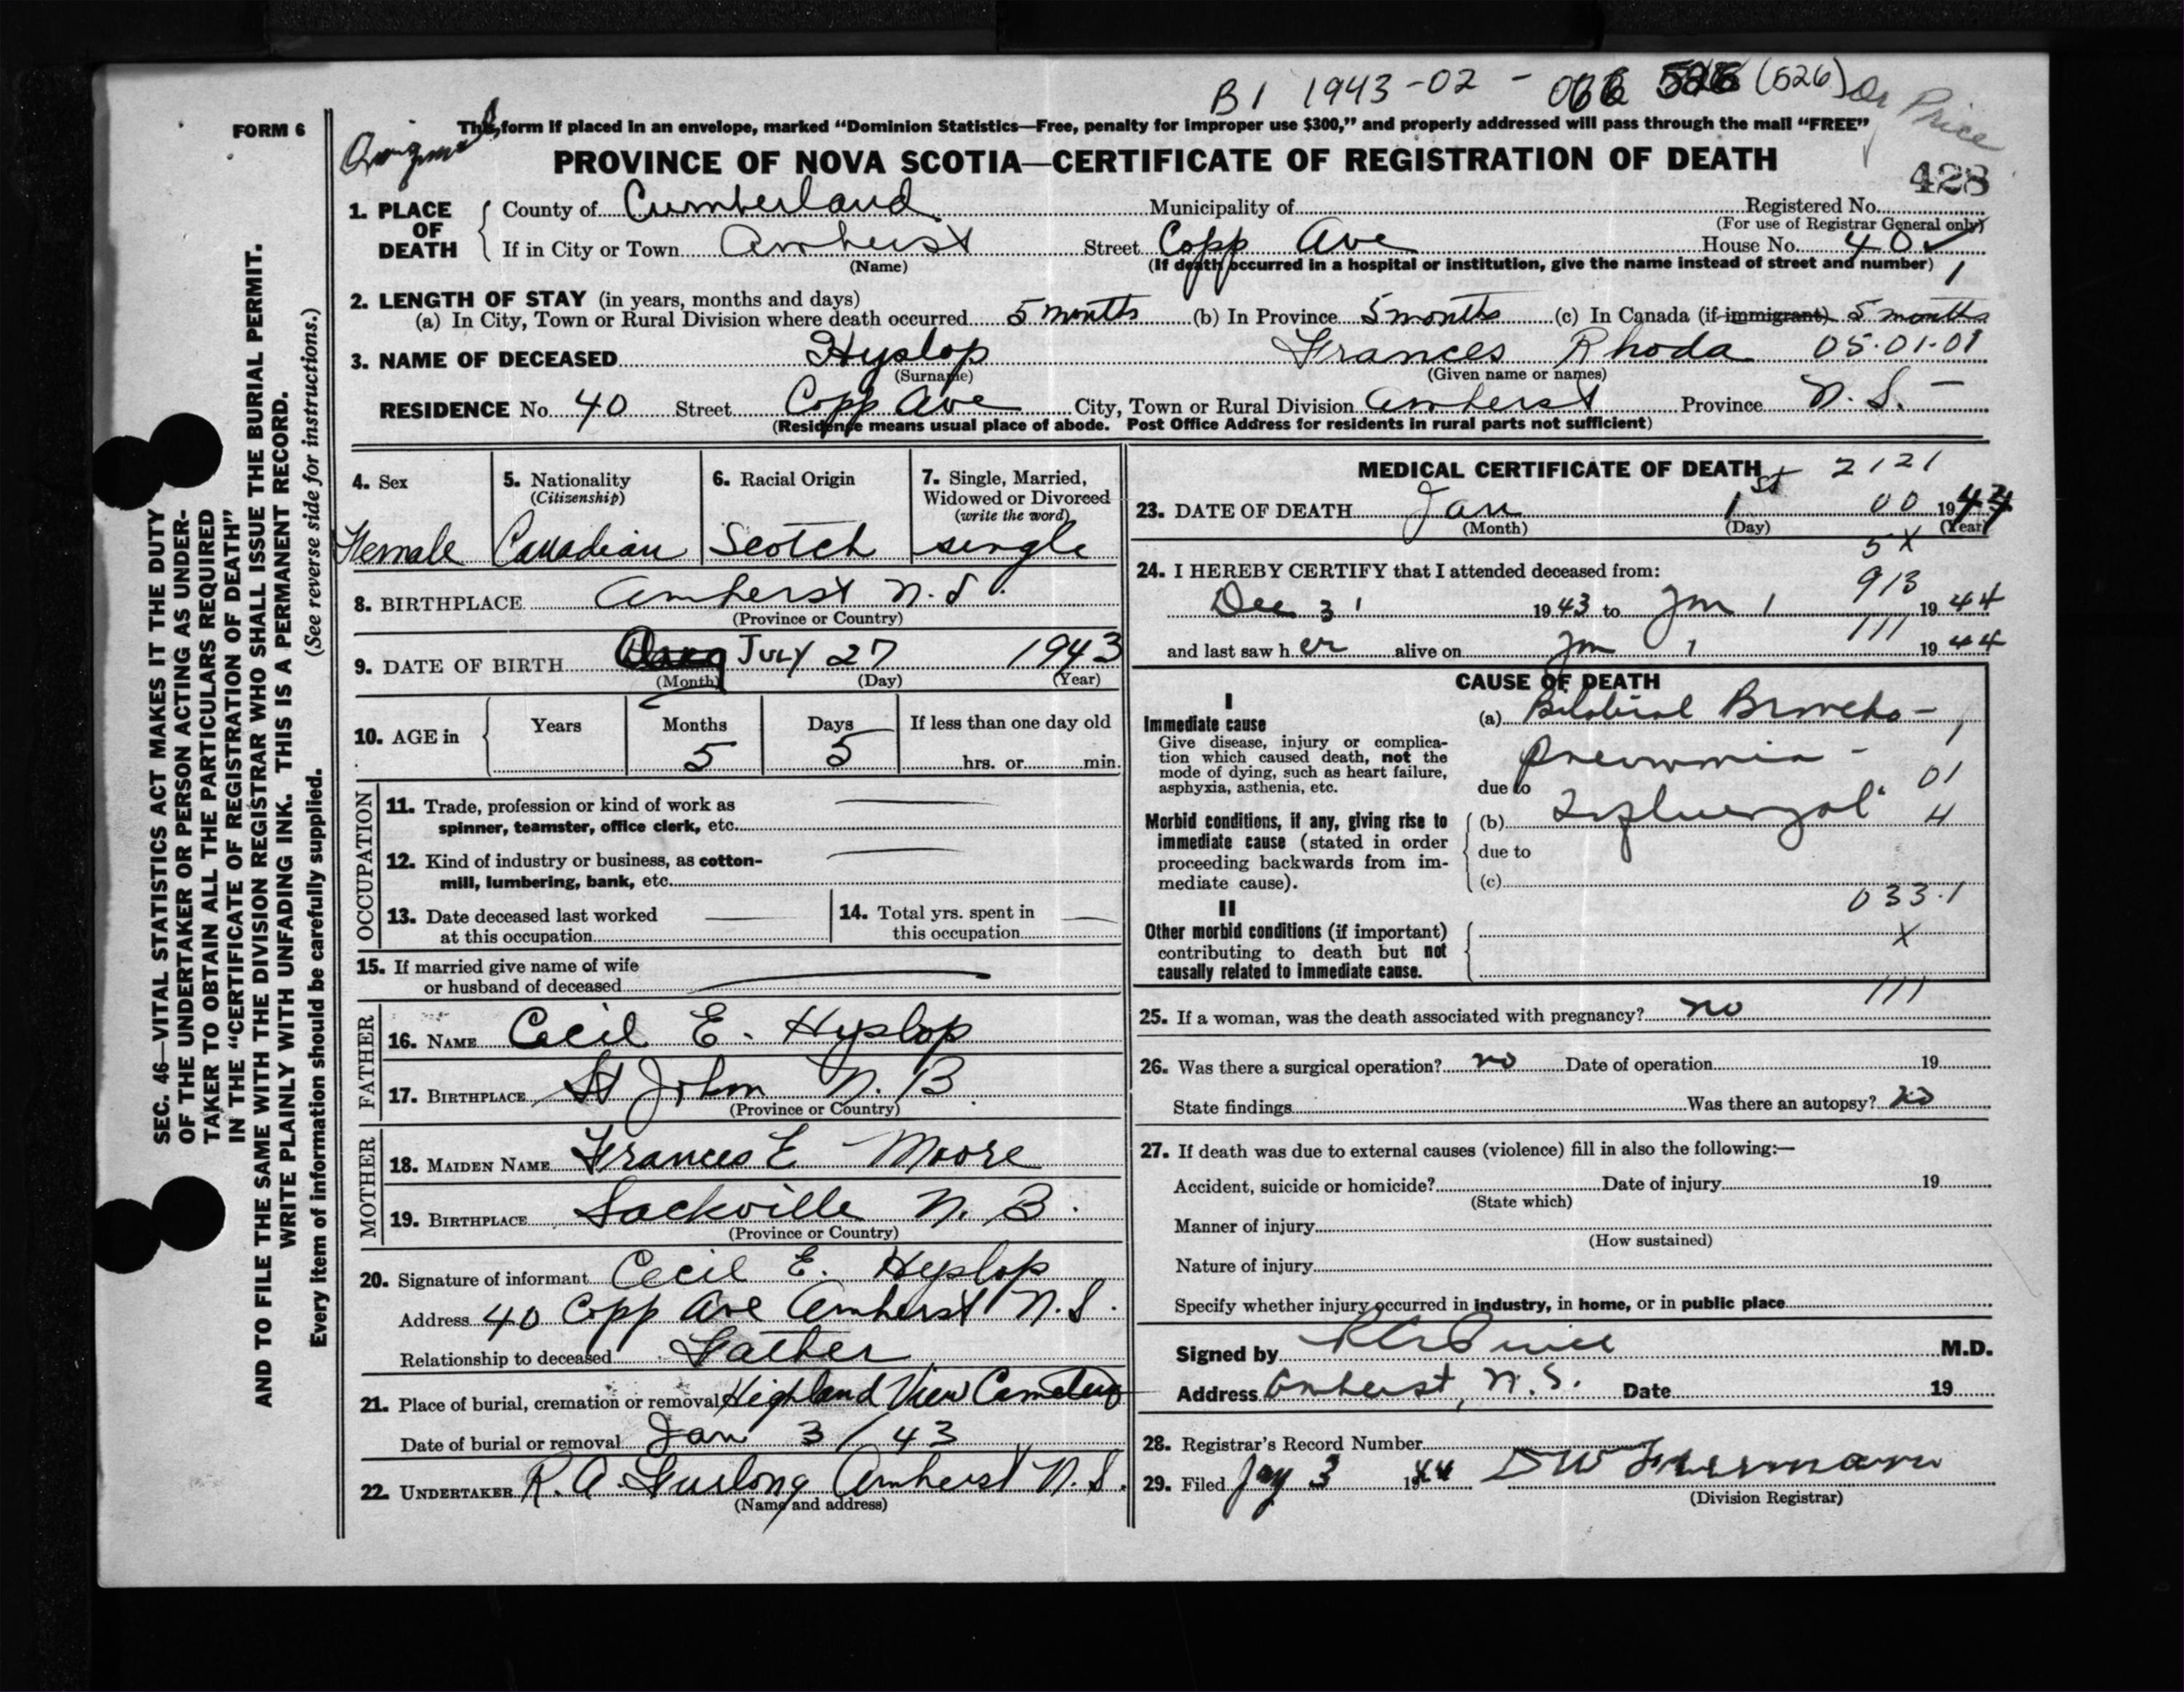 B1 1943-02 - 066 526 (526) Dr Price
FORM 6
Original
This form if placed in an envelope, marked “Dominion Statistics—Free, penalty for improper use $300,” and properly addressed will pass through the mail “FREE”
PROVINCE OF NOVA SCOTIA—CERTIFICATE OF REGISTRATION OF DEATH
428
1. PLACE OF DEATH
County of Cumberland Municipality of Registered No.
(For use of Registrar General only)
If in City or Town Amherst Street Copp Ave House No. 40 ✓
(Name) (If death occurred in a hospital or institution, give the name instead of street and number) 1
2. LENGTH OF STAY (in years, months and days)
(a) In City, Town or Rural Division where death occurred 5 months (b) In Province 5 months (c) In Canada (if immigrant) 5 months
3. NAME OF DECEASED Hyslop Frances Rhoda 05.01.01
(Surname) (Given name or names)
RESIDENCE No. 40 Street Copp Ave City, Town or Rural Division Amherst Province N. S. —
(Residence means usual place of abode. Post Office Address for residents in rural parts not sufficient)
4. Sex
Female
5. Nationality
(Citizenship)
Canadian
6. Racial Origin
Scotch
7. Single, Married,
Widowed or Divorced
(write the word)
single
8. BIRTHPLACE Amherst N.S.
(Province or Country)
9. DATE OF BIRTH July 27 1943
(Month) (Day) (Year)
10. AGE in
Years Months Days If less than one day old
5 5 hrs. or min.
OCCUPATION
11. Trade, profession or kind of work as
spinner, teamster, office clerk, etc.
12. Kind of industry or business, as cotton-
mill, lumbering, bank, etc.
13. Date deceased last worked
at this occupation
14. Total yrs. spent in
this occupation
15. If married give name of wife
or husband of deceased
FATHER
16. NAME Cecil E. Hyslop
17. BIRTHPLACE St John N. B.
(Province or Country)
MOTHER
18. MAIDEN NAME Frances E Moore
19. BIRTHPLACE Sackville N. B.
(Province or Country)
20. Signature of informant Cecil E. Hyslop
Address 40 Copp Ave Amherst N.S.
Relationship to deceased Father
21. Place of burial, cremation or removal Highland View Cemetery
Date of burial or removal Jan 3/43
22. UNDERTAKER R. A. Furlong Amherst N.S.
(Name and address)
MEDICAL CERTIFICATE OF DEATH 2121
23. DATE OF DEATH Jan 1st 00 1944
(Month) (Day) (Year)
5X
24. I HEREBY CERTIFY that I attended deceased from:
913
Dec 31 1943 to Jan 1 1944
111
and last saw her alive on Jan 1 1944
CAUSE OF DEATH
I
Immediate cause
Give disease, injury or complica-
tion which caused death, not the
mode of dying, such as heart failure,
asphyxia, asthenia, etc.
(a) Bilateral Broncho- 1
Pneumonia -
due to 01
Morbid conditions, if any, giving rise to
immediate cause (stated in order
proceeding backwards from im-
mediate cause).
(b) Influenzal 4
due to
(c)
033.1
II
Other morbid conditions (if important)
contributing to death but not
causally related to immediate cause.
X
111
25. If a woman, was the death associated with pregnancy? no
26. Was there a surgical operation? no Date of operation 19
State findings Was there an autopsy? no
27. If death was due to external causes (violence) fill in also the following:—
Accident, suicide or homicide? Date of injury 19
(State which)
Manner of injury
(How sustained)
Nature of injury
Specify whether injury occurred in industry, in home, or in public place
Signed by Price M.D.
Address Amherst, N.S. Date 19
28. Registrar’s Record Number
29. Filed Jan 3 1944
(Division Registrar)
SEC. 46—VITAL STATISTICS ACT MAKES IT THE DUTY
OF THE UNDERTAKER OR PERSON ACTING AS UNDER-
TAKER TO OBTAIN ALL THE PARTICULARS REQUIRED
IN THE “CERTIFICATE OF REGISTRATION OF DEATH”
AND TO FILE THE SAME WITH THE DIVISION REGISTRAR WHO SHALL ISSUE THE BURIAL PERMIT.
WRITE PLAINLY WITH UNFADING INK. THIS IS A PERMANENT RECORD.
Every item of information should be carefully supplied. (See reverse side for instructions.)